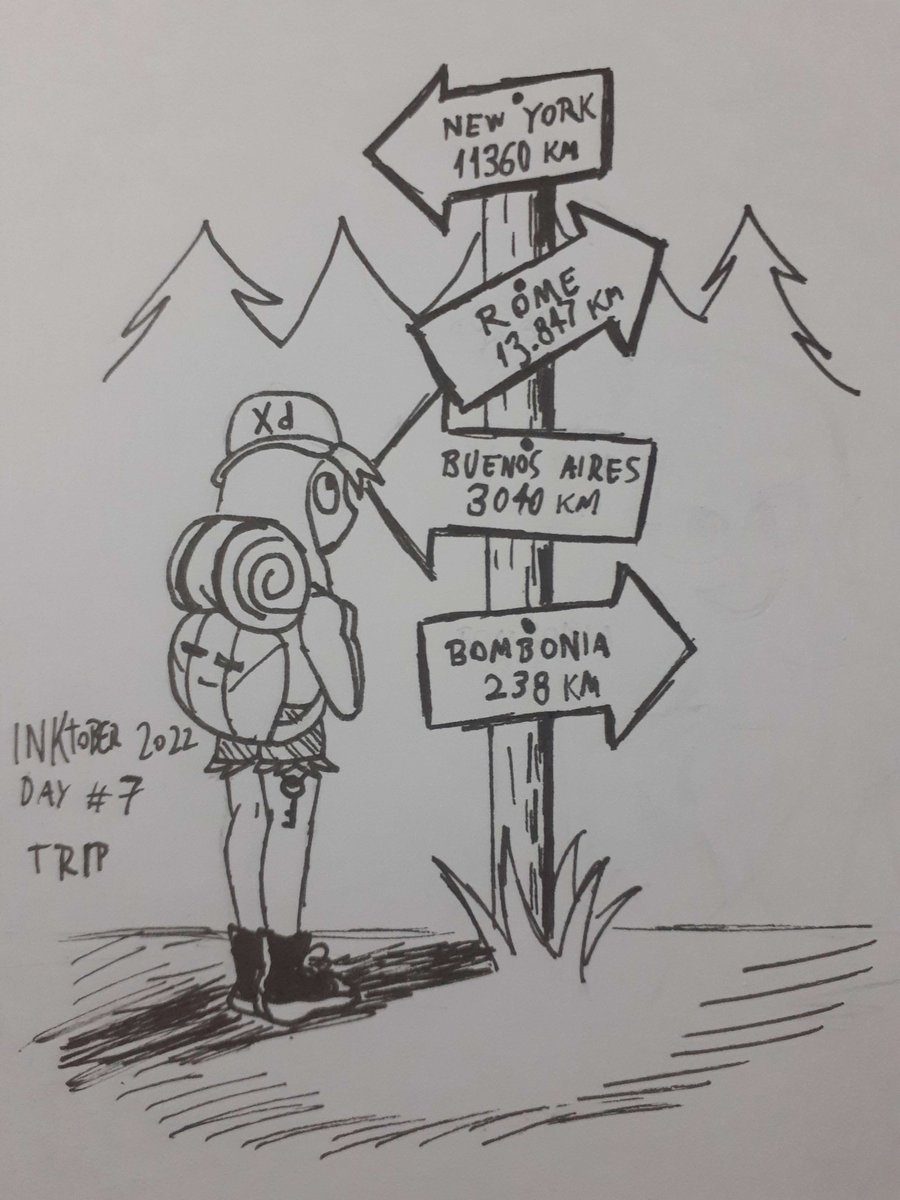 NEW YORK
11360 KM
ROME
13.847 KM
Xd
BUENOS AIRES
3040 KM
BOMBONIA
238 KM
INKTOBER 2022
DAY #7
TRIP